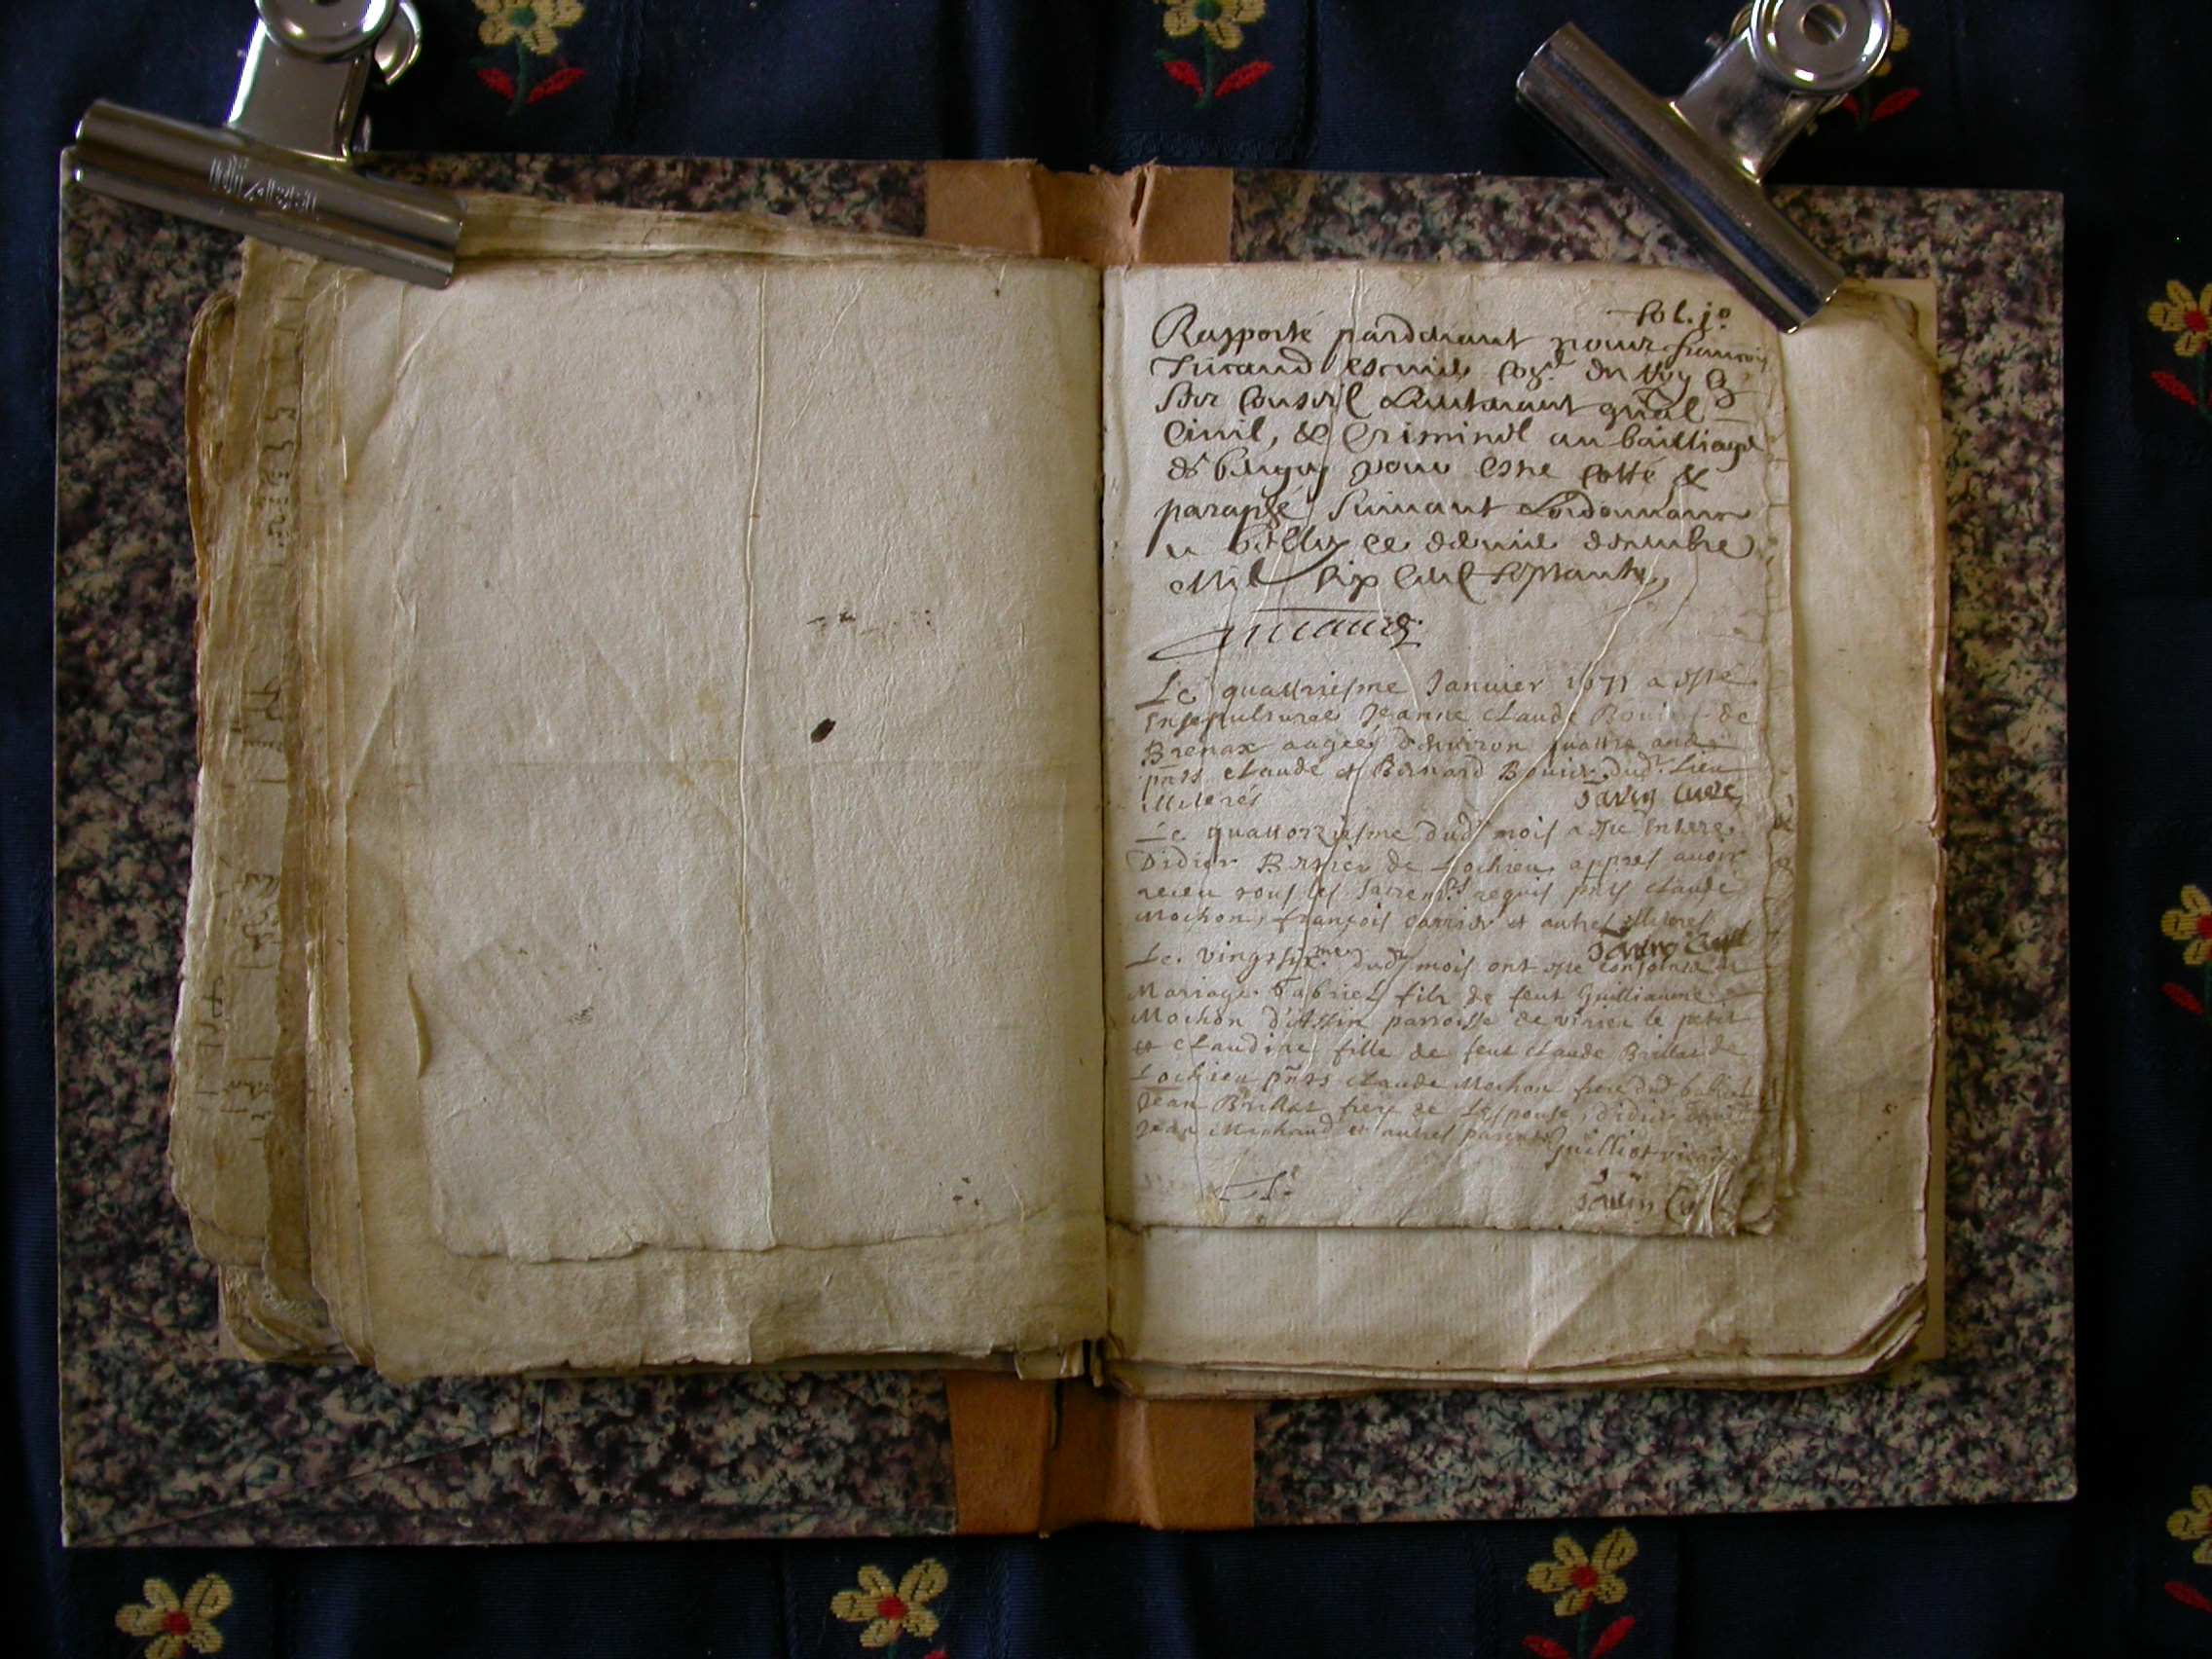 fol. 1o
Rapporté pardevant nous françois
Tricaud escuier cogr. du Roy &
Ses conseil Lieutenant gnal
Civil, & Criminel au bailliage
de bugey pour estre cotté &
paraphé suivant Lordonnance
a belley ce dernier decembre
Mil six cent septante,
Tricaud
Le quattriesme Janvier 1671 a esté
Ensepulturée Jeanne Claude Bovier de
Brenax aagée d'environ quattre ands
pnts Claude et Bernard Bovier dudt. Lieu
illiterés Savin Curé
Le quattorziesme dudt mois a esté Enterré
Didier de Lochieu appres avoir
receu tous les Sacremts requis pnts Claude
Mochon, françois et autres illiterés
Savin Curé
Le vingtsixme dudt mois ont esté conjoinct en
Mariage Gabriel fils de feut Guilliaume
Mochon d'Assin parroisse de virieu le petit
et Claudine fille de feut Claude Brillat de
Lochieu pnts Claude Mochon frere dudt Gabriel
Jean Brillat frere de Lespouse, Didier
Jean Marchand et autres parents
Guilliot vicaire
Savin Curé